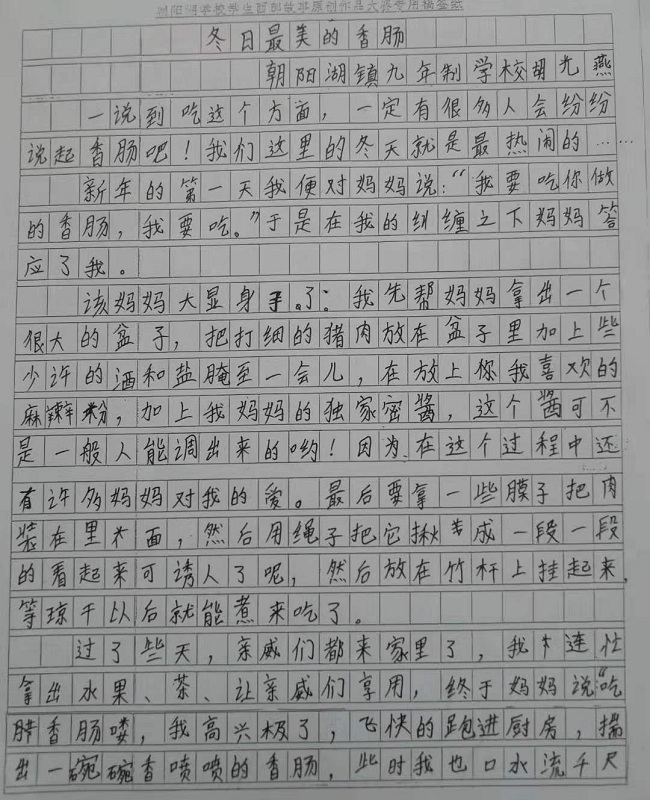 朝阳湖学校学生
冬日最美的香肠
朝阳湖镇九年制学校胡尤燕
一说到吃这个方面，一定有很多人会纷纷
说起香肠吧！我们这里的冬天就是最热闹的……
新年的第一天我便对妈妈说：“我要吃你做
的香肠，我要吃。”于是在我的纠缠之下妈妈答
应了我。
该妈妈大显身手了：我先帮妈妈拿出一个
很大的盆子，把打细的猪肉放在盆子里加上些
少许的酒和盐腌至一会儿，在放上你我喜欢的
麻辣粉，加上我妈妈的独家密酱，这个酱可不
是一般人能调出来的哟！因为在这个过程中还
有许多妈妈对我的爱。最后要拿一些膜子把肉
装在里面，然后用绳子把它揪成一段一段
的看起来可诱人了呢，然后放在竹杆上挂起来，
等琼干以后就能煮来吃了。
过了些天，亲威们都来家里了，我连忙
拿出水果、茶、让亲威们享用，终于妈妈说“吃
腊香肠喽，我高兴极了，飞快的跑进厨房，揣
出一碗碗香喷喷的香肠，此时我也口水流千尺